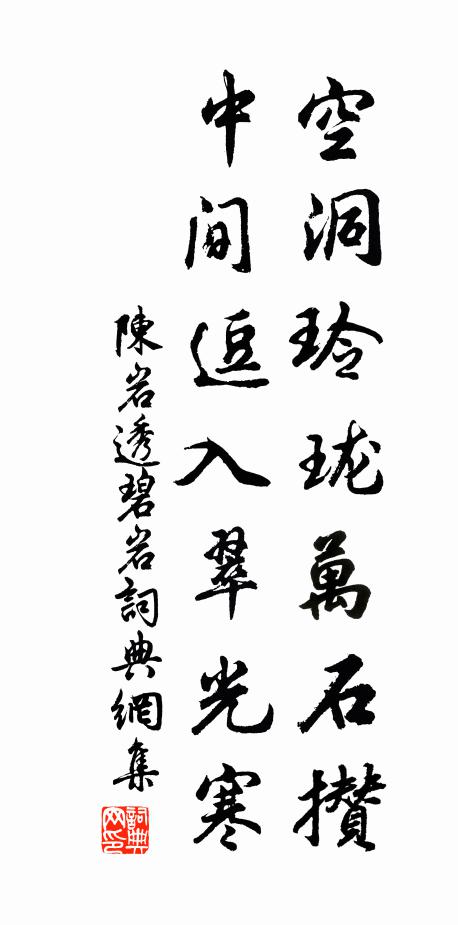 空洞玲瓏萬石攢
中間逗入翠光寒
陳岩透碧岩詞典網集
詞典网印